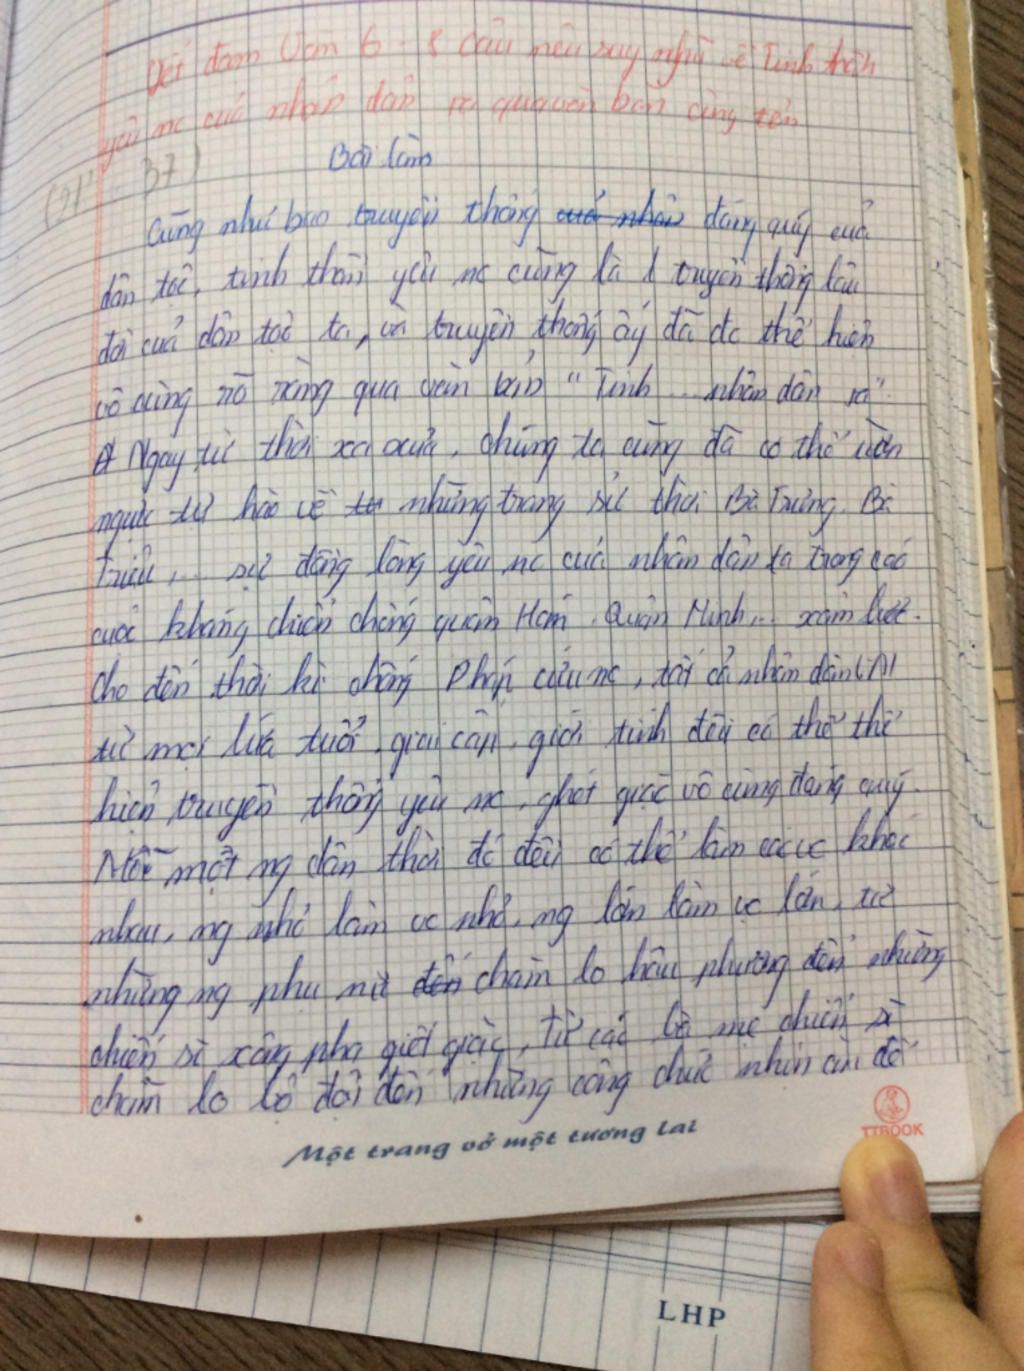 Viết đoạn văn 6 - 8 câu nêu suy nghĩ về tinh thần
yêu nc của nhân dân ta qua văn bản cùng tên
Bài làm
Cũng như bao truyền thống của nhân đáng quý của
dân tộc, tinh thần yêu nc cũng là 1 truyền thống lâu
đời của dân tộc ta, và truyền thống ấy đã đc thể hiện
vô cùng rõ ràng qua văn bản "Tinh ... nhân dân ta".
Ngay từ thời xa xưa, chúng ta cũng đã có thể ưỡn
ngực tự hào về những trang sử thời Bà Trưng, Bà
Triệu, ... sự đồng lòng yêu nc của nhân dân ta trong các
cuộc kháng chiến chống quân Hán, Quân Minh... xâm lược.
Cho đến thời kì chống Pháp cứu nc, tất cả nhân dân VN
từ mọi lứa tuổi, giai cấp, giới tính đều có thể thể
hiện truyền thống yêu nc, ghét giặc vô cùng đáng quý.
Mỗi một ng dân thời đó đều có thể làm các vc khác
nhau, ng nhỏ làm vc nhỏ, ng lớn làm vc lớn, từ
những ng phụ nữ đến chăm lo hậu phương đến những
chiến sĩ xông pha giết giặc, từ các bà mẹ chiến sĩ
chăm lo bộ đội đến những công chức nhịn ăn để
Một trang vở một tương lai
TTBOOK
LHP